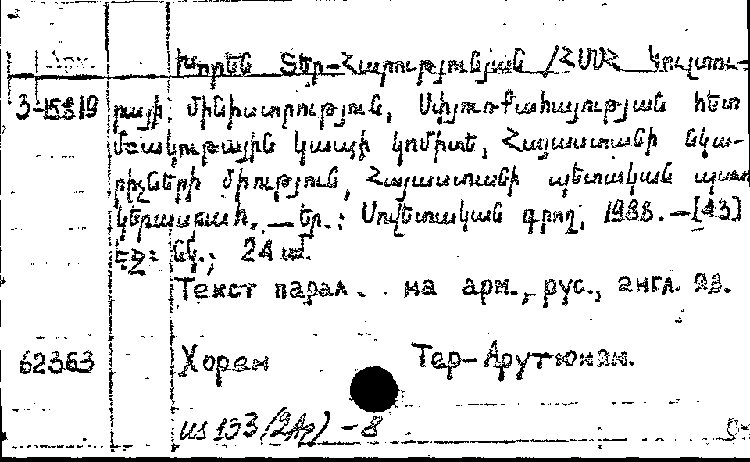 Арм.
Խորեն Տեր-Հարությունյան /ՀՍՍՀ Կուլտու-
3-15819 րայի մինիստրություն, Սփյուռքահայության հետ
մշակութային կապի կոմիտե, Հայաստանի նկա-
րիչների միություն, Հայաստանի պետական պատ
կերասրահ. _ Եր.: Սովետական գրող, 1988. -[43]
էջ: նկ.; 24 սմ.
Текст парал. . на арм., рус., англ. яз.
62363 Хорен Тер-Арутюнян.
-8